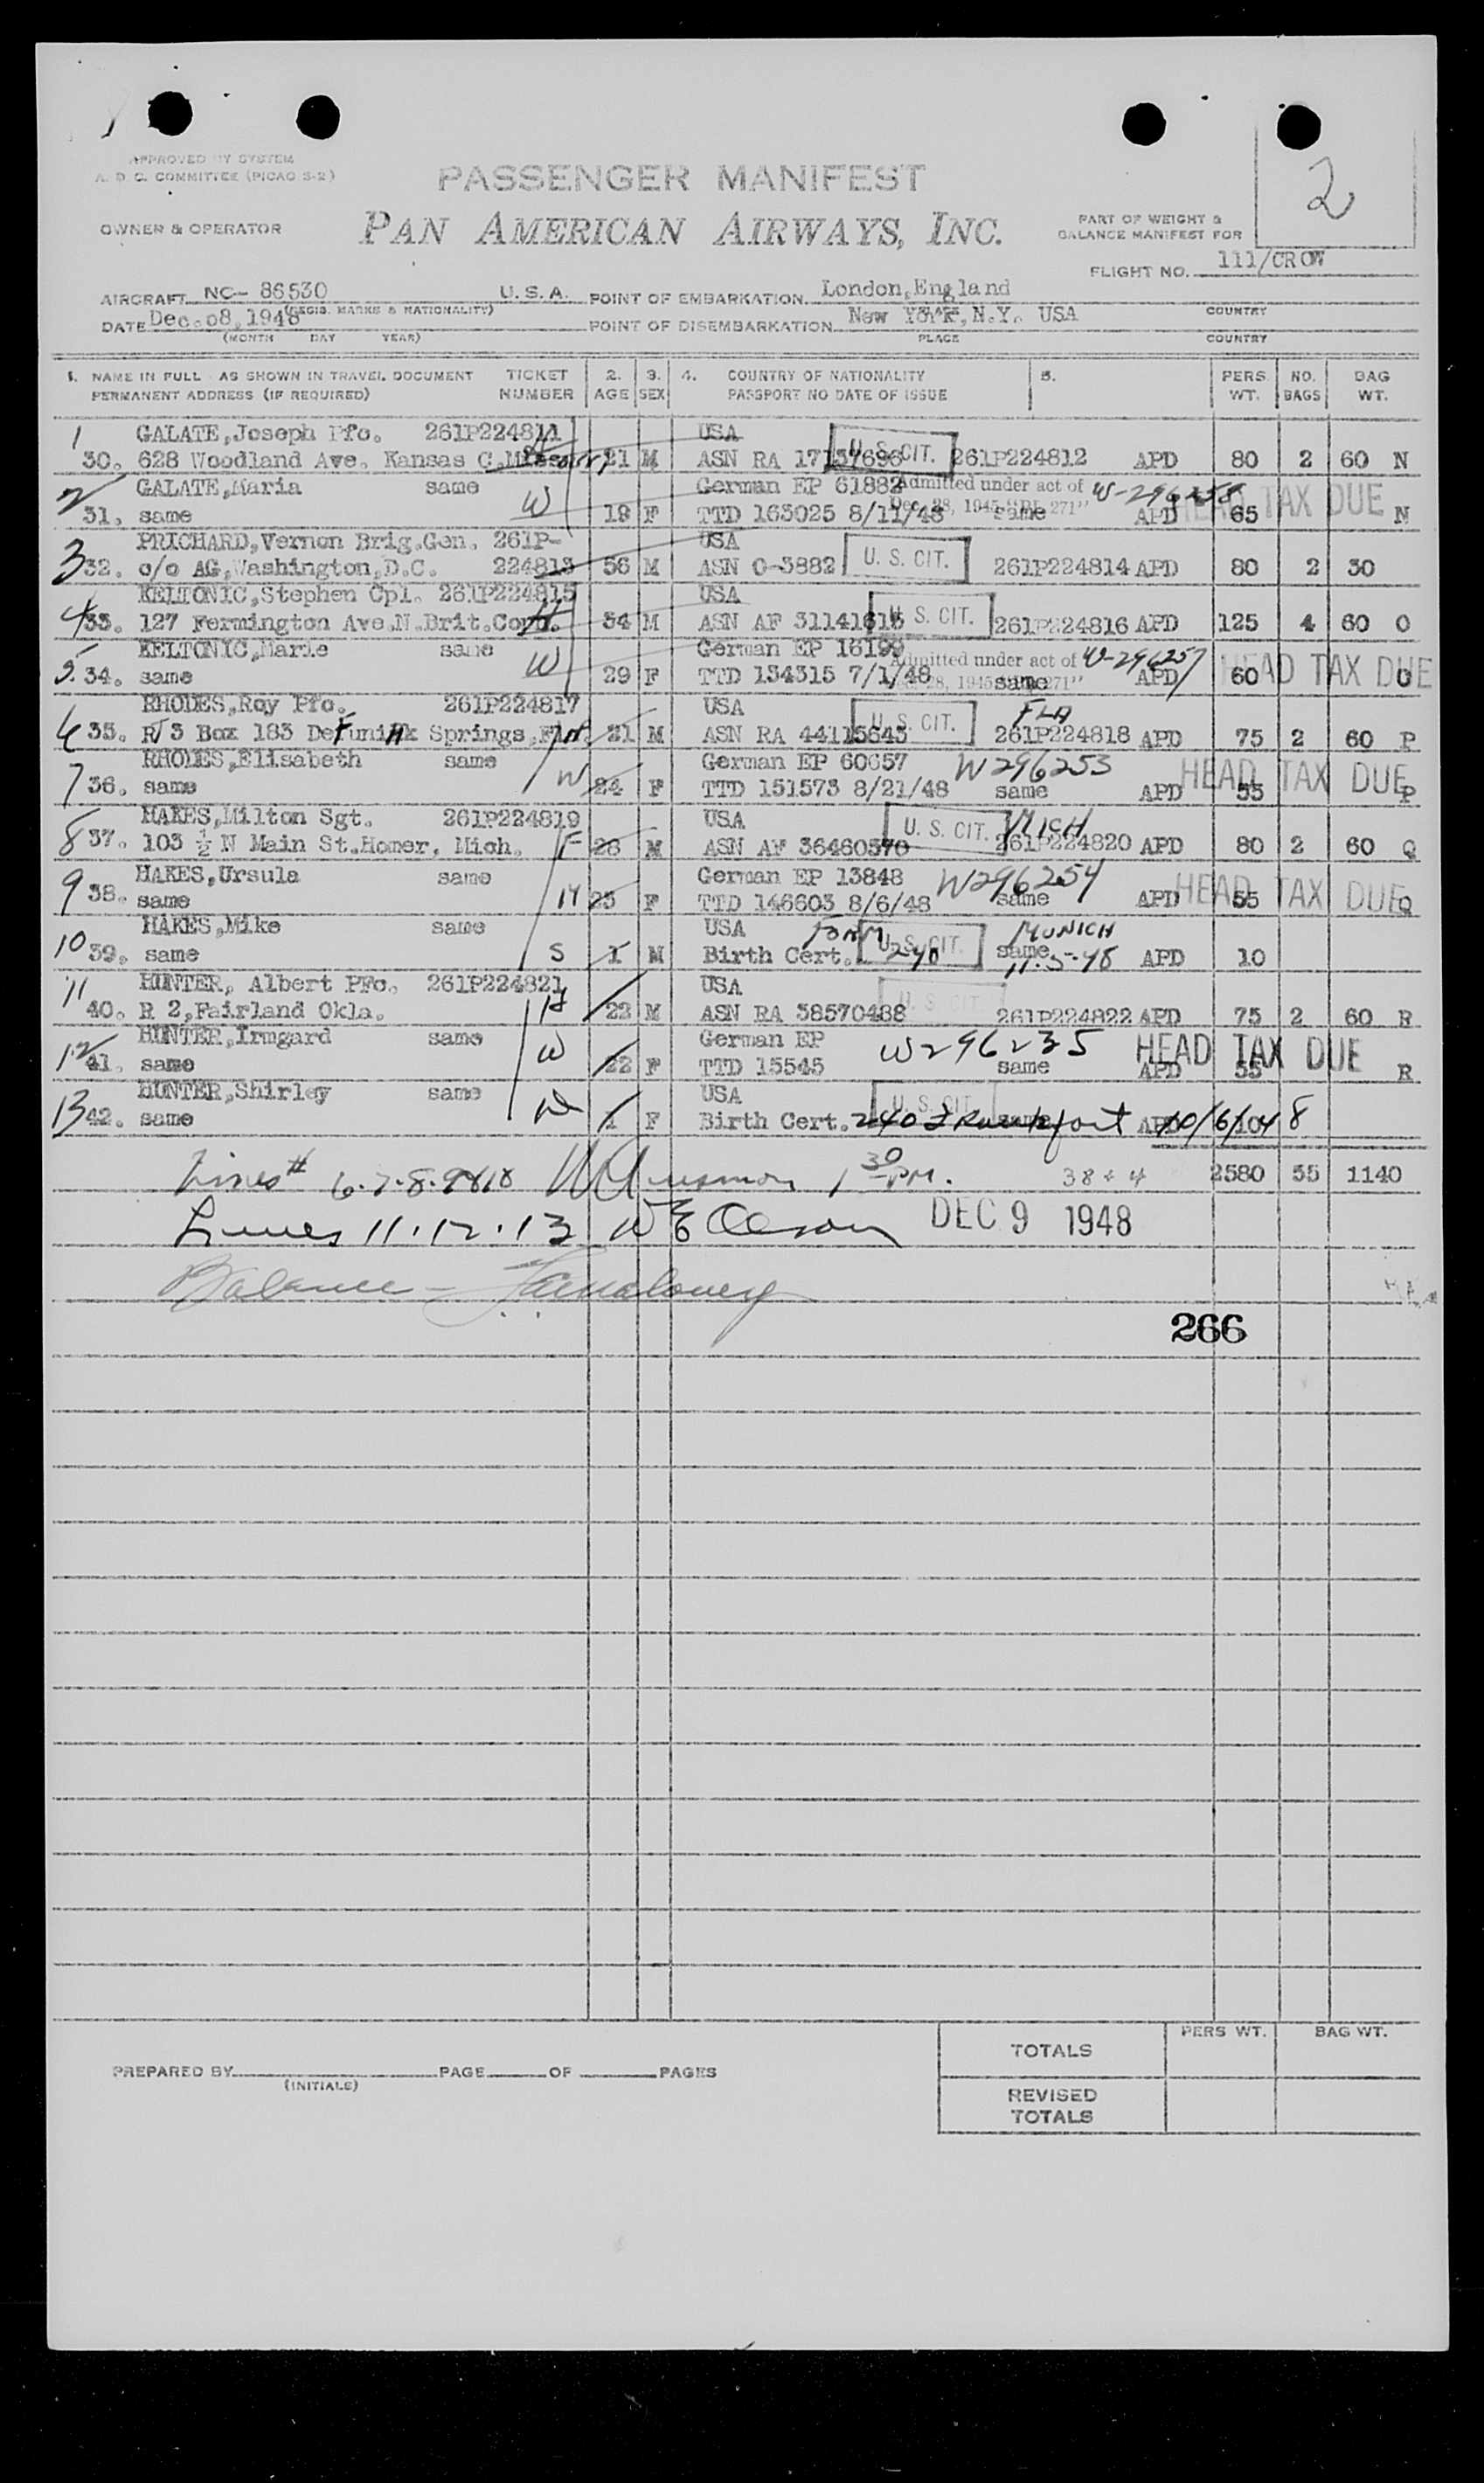 APPROVED BY SYSTEM
A. D. C. COMMITTEE (PICAO S-2)
PASSENGER MANIFEST
2
OWNER & OPERATOR PAN AMERICAN AIRWAYS, INC. PART OF WEIGHT &
BALANCE MANIFEST FOR
FLIGHT NO. 111/CROW
AIRCRAFT NC- 86530 U.S.A. POINT OF EMBARKATION London,England
(REGIS. MARKS & NATIONALITY) COUNTRY
DATE Dec.08,1948 POINT OF DISEMBARKATION New York,N.Y. USA
(MONTH DAY YEAR) PLACE COUNTRY
1. NAME IN FULL AS SHOWN IN TRAVEL DOCUMENT TICKET 2. 3. 4. COUNTRY OF NATIONALITY 5. PERS NO. BAG
PERMANENT ADDRESS (IF REQUIRED) NUMBER AGE SEX PASSPORT NO DATE OF ISSUE WT. BAGS WT.
1 GALATE,Joseph Pfc. 261P224811 USA U. S. CIT.
30. 628 Woodland Ave. Kansas C. 21 M ASN RA 17157696 261P224812 APD 80 2 60 N
2 GALATE,Maria same W German EP 61882 Admitted under act of W-296258 HEAD TAX DUE
31. same 19 F TTD 163025 8/11/48 Dec. 28, 1945 "PL 271" same APD 65 N
3 PRICHARD,Vernon Brig.Gen. 261P- USA U. S. CIT.
32. c/o AG,Washington,D.C. 224813 56 M ASN O-3882 261P224814 APD 80 2 30
4 KELTONIC,Stephen Cpl. 261P224815 USA U. S. CIT.
33. 127 Fermington Ave.N.Brit.Conn. H 34 M ASN AF 31141616 261P224816 APD 125 4 60 O
5. KELTONIC,Marie same W German EP 16199 Admitted under act of W-296257 HEAD TAX DUE
34. same 29 F TTD 134315 7/1/48 Dec. 28, 1945 "PL 271" same APD 60 O
6 RHODES,Roy Pfc. 261P224817 USA U. S. CIT. FLA
35. R 3 Box 183 DeFuniak Springs,Fla. H 21 M ASN RA 44115645 261P224818 APD 75 2 60 P
7 RHODES,Elisabeth same W German EP 60657 W296253 HEAD TAX DUE
36. same 24 F TTD 151573 8/21/48 same APD 55 P
8 HAKES,Milton Sgt. 261P224819 USA U. S. CIT. MICH
37. 103 ½ N Main St.Homer, Mich. F 26 M ASN AF 36460570 261P224820 APD 80 2 60 Q
9 HAKES,Ursula same German EP 13848 W296254 HEAD TAX DUE
38. same M 23 F TTD 146603 8/6/48 same APD 55 Q
10 HAKES,Mike same USA FORM U. S. CIT. MUNICH
39. same S 1 M Birth Cert. 240 same 11-5-48 APD 10
11 HUNTER, Albert Pfc. 261P224821 USA U. S. CIT.
40. R 2,Fairland Okla. H 22 M ASN RA 38570488 261P224822 APD 75 2 60 R
12 HUNTER,Irmgard same W German EP W296235 HEAD TAX DUE
41. same 22 F TTD 15545 same APD 55 R
13 HUNTER,Shirley same USA U. S. CIT.
42. same D 1 F Birth Cert. 240 Frankfort same APD 10/6/48 10
Lines # 6-7-8-9&10 1 30 PM. 38 + 4 2580 55 1140
Lines 11-12-13 W E Olson DEC 9 1948
Balance -
266
PREPARED BY PAGE OF PAGES
(INITIALS)
PERS WT. BAG WT.
TOTALS
REVISED
TOTALS